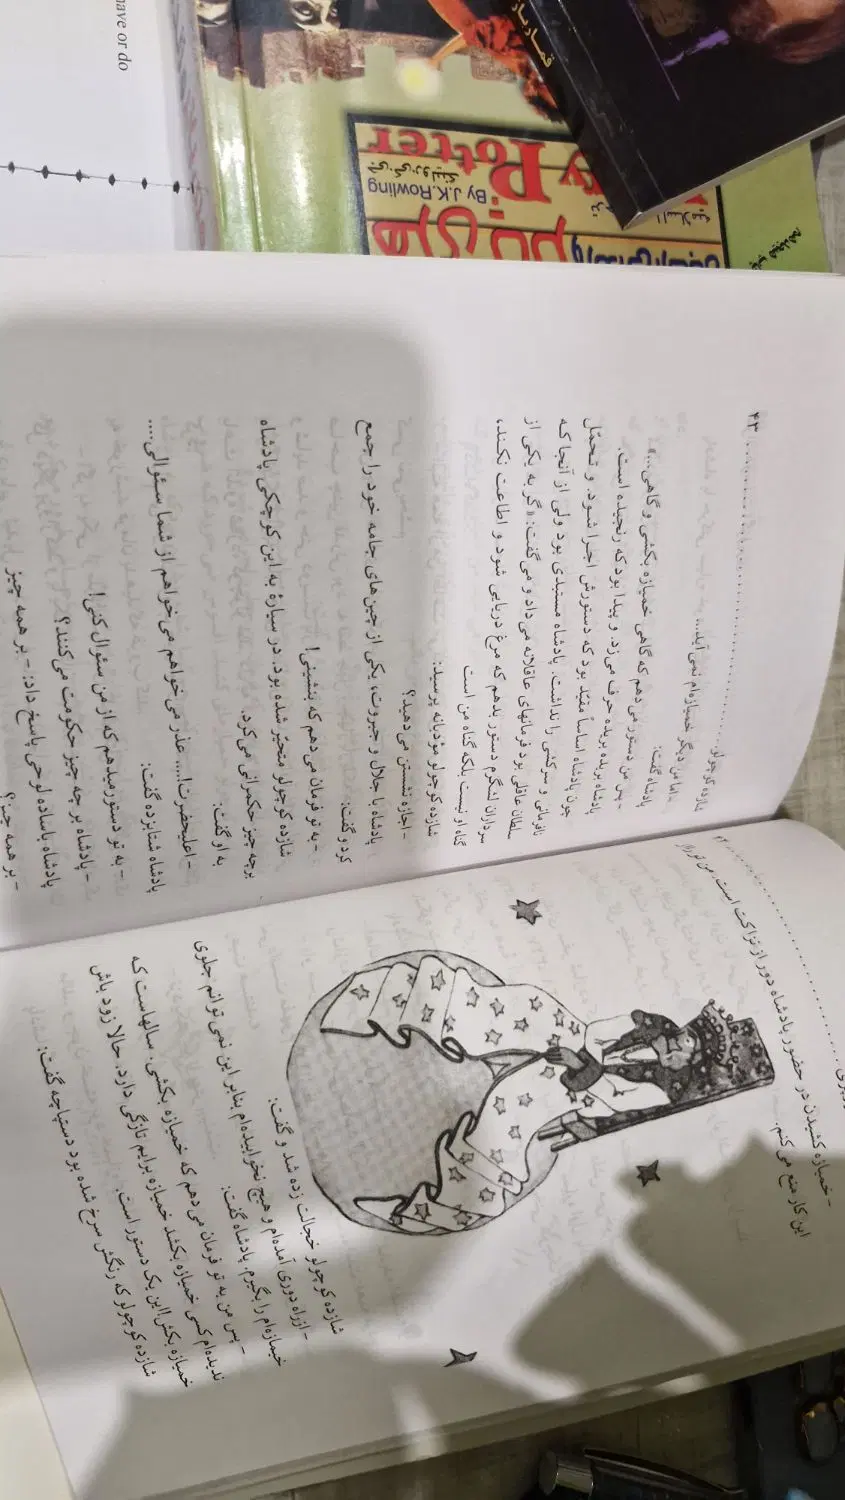 have or do
قمارباز
Potter
ry
جی.کی.رولینگ
By J.K.Rowling
هری پاتر
۴۲
- خمیازه کشیدن در حضور پادشاه دور از نزاکت است. من تو را از
این کار منع می‌کنم.
شازده کوچولو خجالت زده شد و گفت:
- از راه دوری آمده‌ام و هیچ نخوابیده‌ام بنابر این نمی‌توانم جلوی
خمیازه‌ام را بگیرم. پادشاه گفت:
- پس من به تو فرمان می‌دهم که خمیازه بکشی. سالهاست که
ندیده‌ام کسی خمیازه بکشد خمیازه برایم تازگی دارد. حالا زود باش
خمیازه بکش! این یک دستور است.
شازده کوچولو که رنگش سرخ شده بود دستپاچه گفت:
شازده کوچولو
۴۳
- اما من دیگر خمیازه‌ام نمی‌آید...
پادشاه گفت:
- پس من دستور می‌دهم که گاهی خمیازه بکشی و گاهی...»
پادشاه بریده بریده حرف می‌زد. و پیدا بود که رنجیده است.
چون پادشاه اساساً مقیّد بود که دستورش اجرا شود. و تحمّل
نافرمانی و سرکشی را نداشت. پادشاه مستبدی بود ولی از آنجا که
سلطان عاقلی بود فرمانهای عاقلانه می‌داد و می‌گفت: «گر به یکی از
سرداران لشگرم دستور بدهم که مرغ دریایی شود و اطاعت نکند،
گناه او نیست بلکه گناه من است
شازده کوچولو مؤدبانه پرسید:
- اجازه نشستن می‌دهید؟
پادشاه با جلال و جبروت، یکی از چین‌های جامه خود را جمع
کرد و گفت:
- به تو فرمان می‌دهم که بنشینی!
شازده کوچولو متحیّر شده بود. در سیارهٔ به این کوچکی پادشاه
برچه چیز حکمرانی می‌کرد.
به او گفت:
- اعلیحضرت!... عذر می‌خواهم می‌خواهم از شما سئوالی....
پادشاه شتابزده گفت:
- به تو دستور میدهم که از من سئوال کنی!
- پادشاه بر چه چیز حکومت می‌کنند؟
پادشاه باساده لوحی پاسخ داد: - بر همه چیز
- بر همه چیز؟